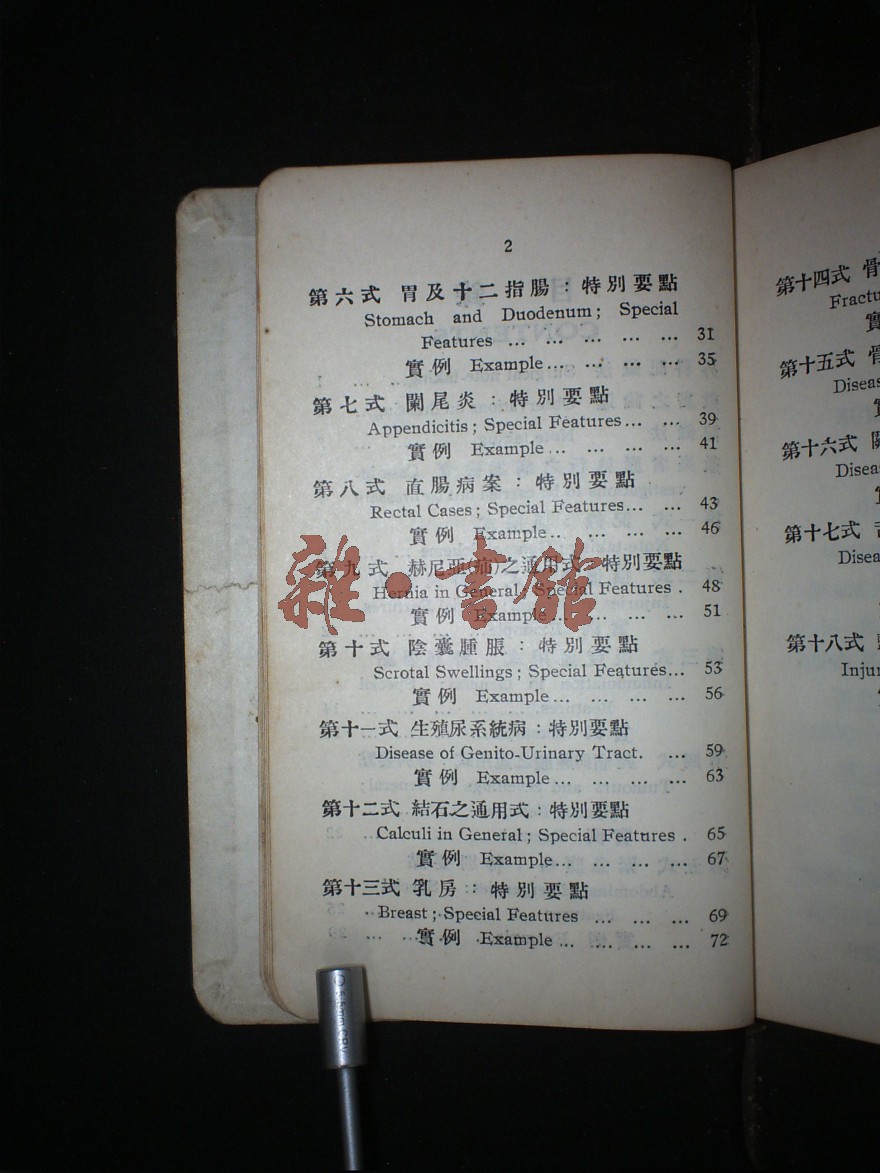 2
第六式 胃及十二指腸：特別要點
Stomach and Duodenum; Special
Features ... ... ... ... ... 31
實例 Example... ... ... ... 35
第七式 闌尾炎：特別要點
Appendicitis; Special Features... ... 39
實例 Example... ... ... ... 41
第八式 直腸病案：特別要點
Rectal Cases; Special Features... ... 43
實例 Example... ... ... ... 46
第九式 赫尼亞(疝)之通用式：特別要點
Hernia in General; Special Features . 48
實例 Example... ... ... ... 51
第十式 陰囊腫脹：特別要點
Scrotal Swellings; Special Features... 53
實例 Example... ... ... ... 56
第十一式 生殖尿系統病：特別要點
Disease of Genito-Urinary Tract. ... 59
實例 Example... ... ... ... 63
第十二式 結石之通用式：特別要點
Calculi in General; Special Features . 65
實例 Example... ... ... ... 67
第十三式 乳房：特別要點
Breast; Special Features ... ... ... 69
實例 Example ... ... ... ... 72
雜·書館
第十四式 骨
Fractu
第十五式 骨
Diseas
第十六式 關
Diseas
第十七式
Disea
第十八式
Injur